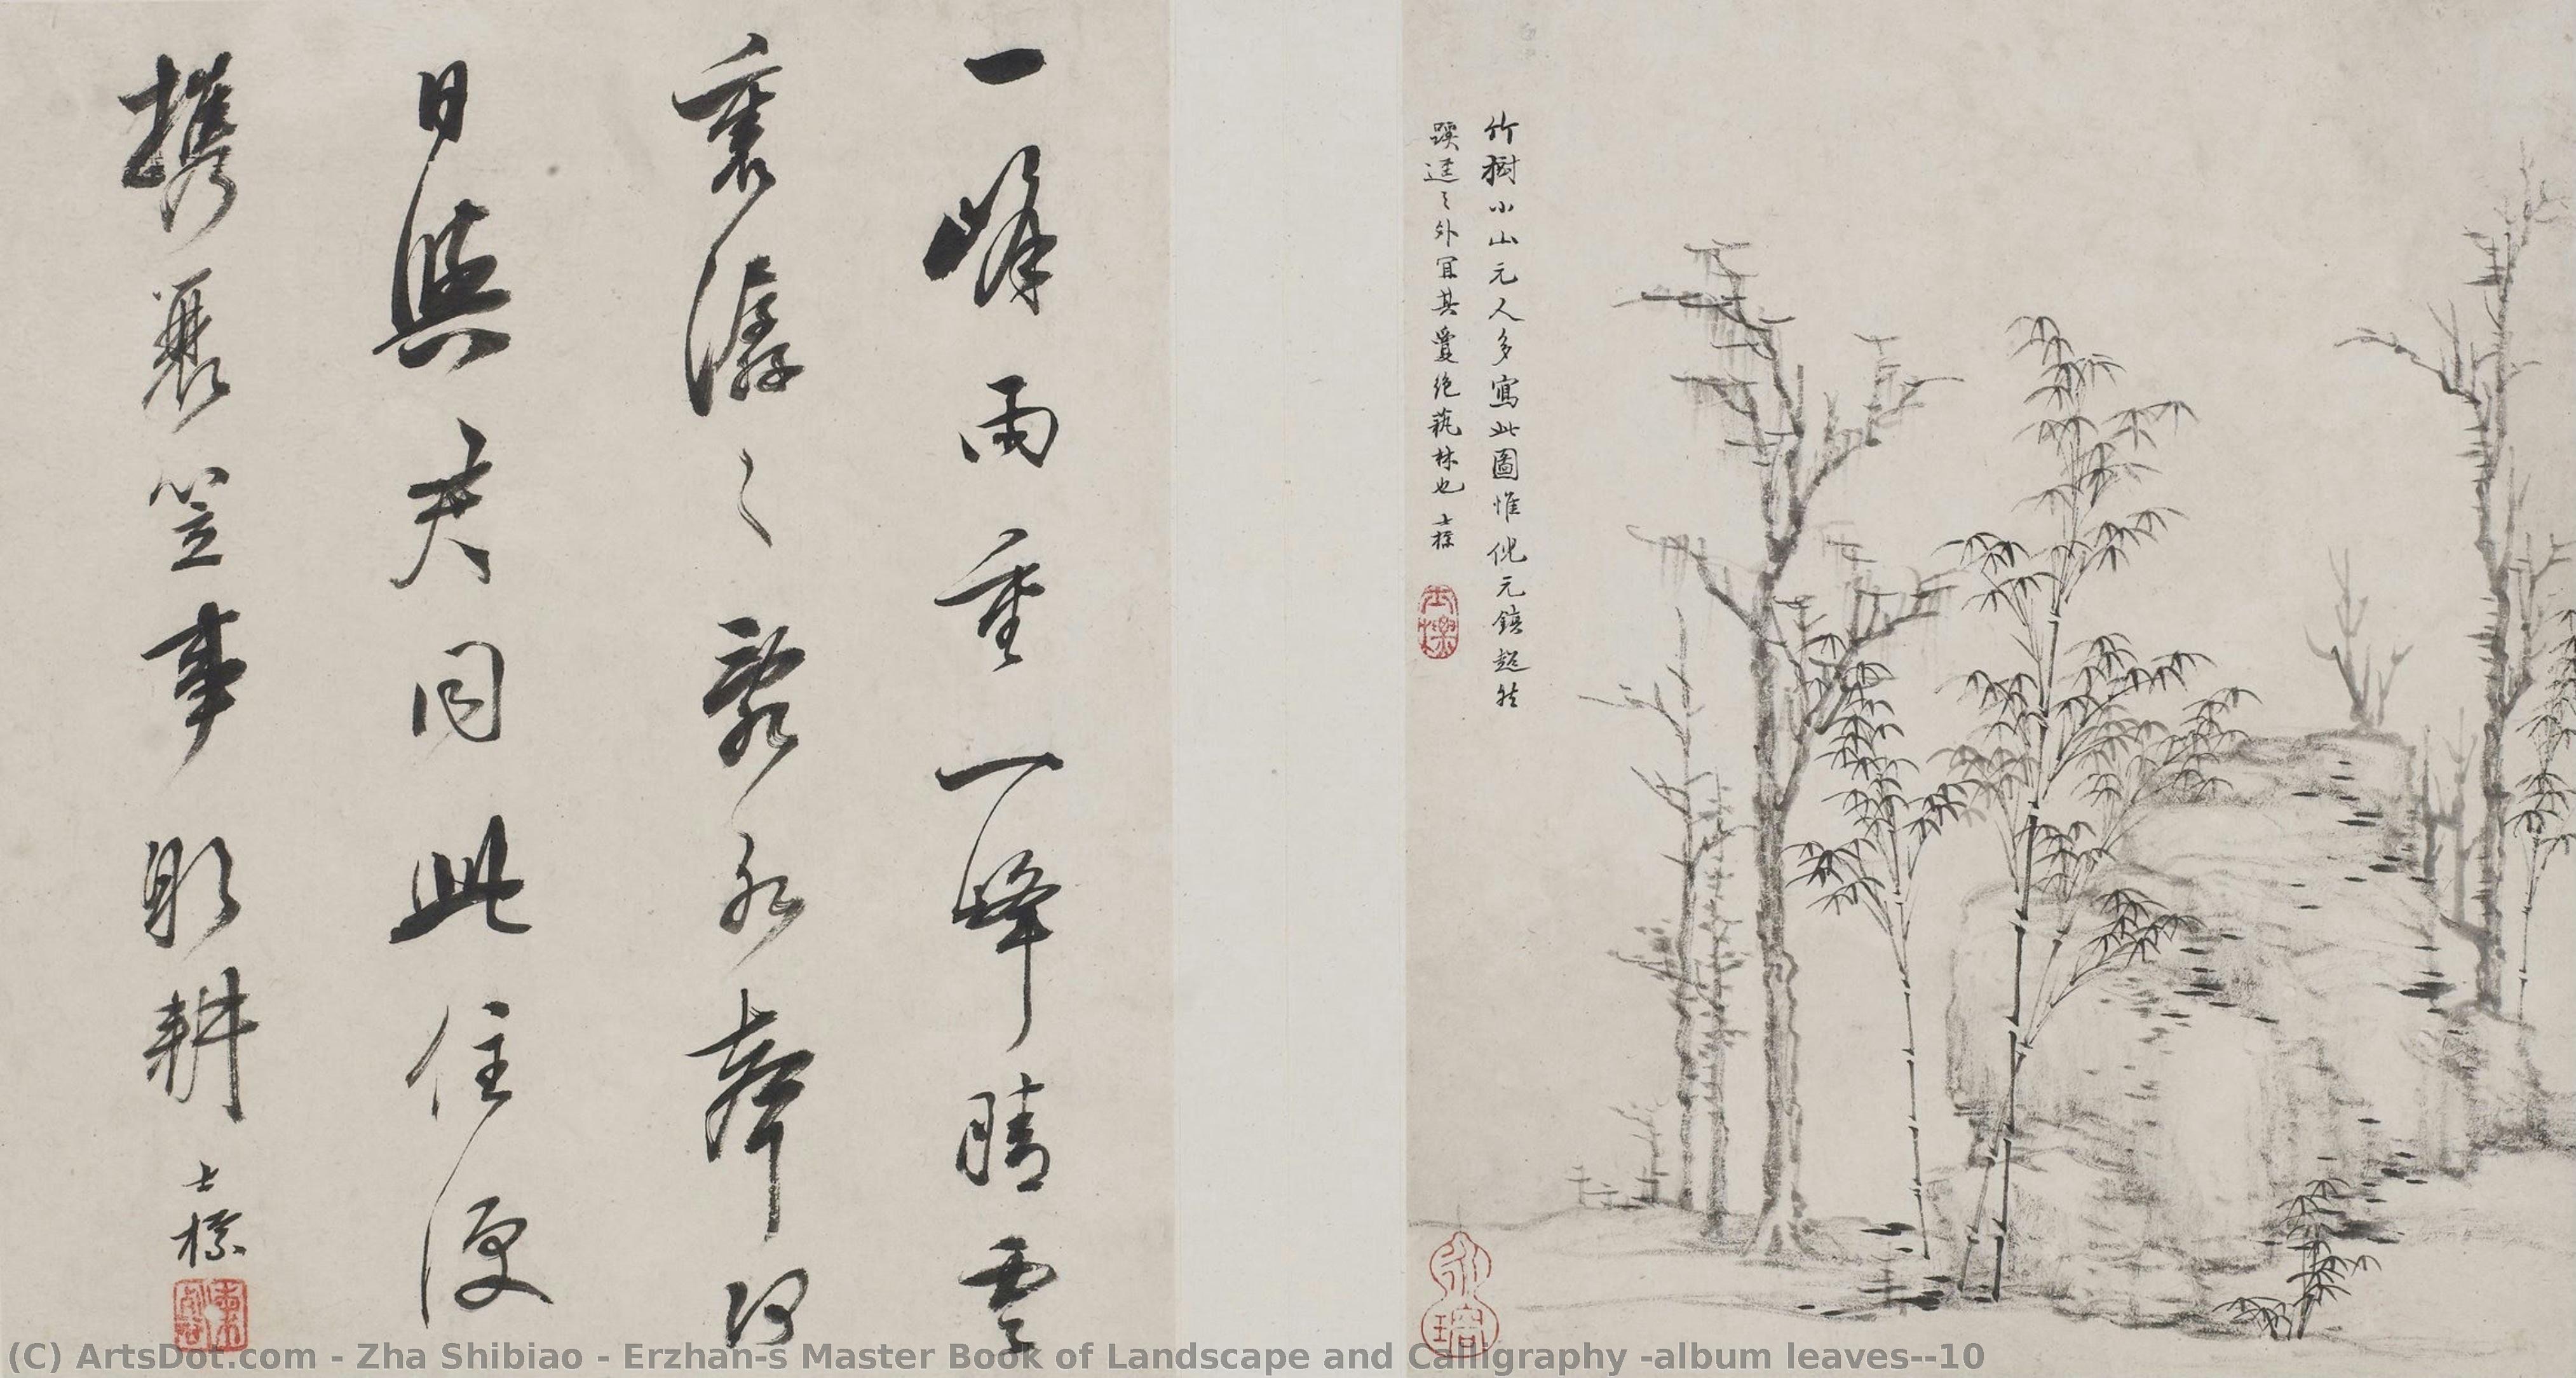 竹樹小山元人多寫此圖惟倪元鎮超然
蹊逕之外宜其夐絕藝林也 士標
永瑢
一峰雨重一峰晴雲
裏潺〻水聲何
日與君同此住便
攜蓑笠事躬耕 士標
(C) ArtsDot.com - Zha Shibiao - Erzhan-s Master Book of Landscape and Calligraphy -album leaves--10